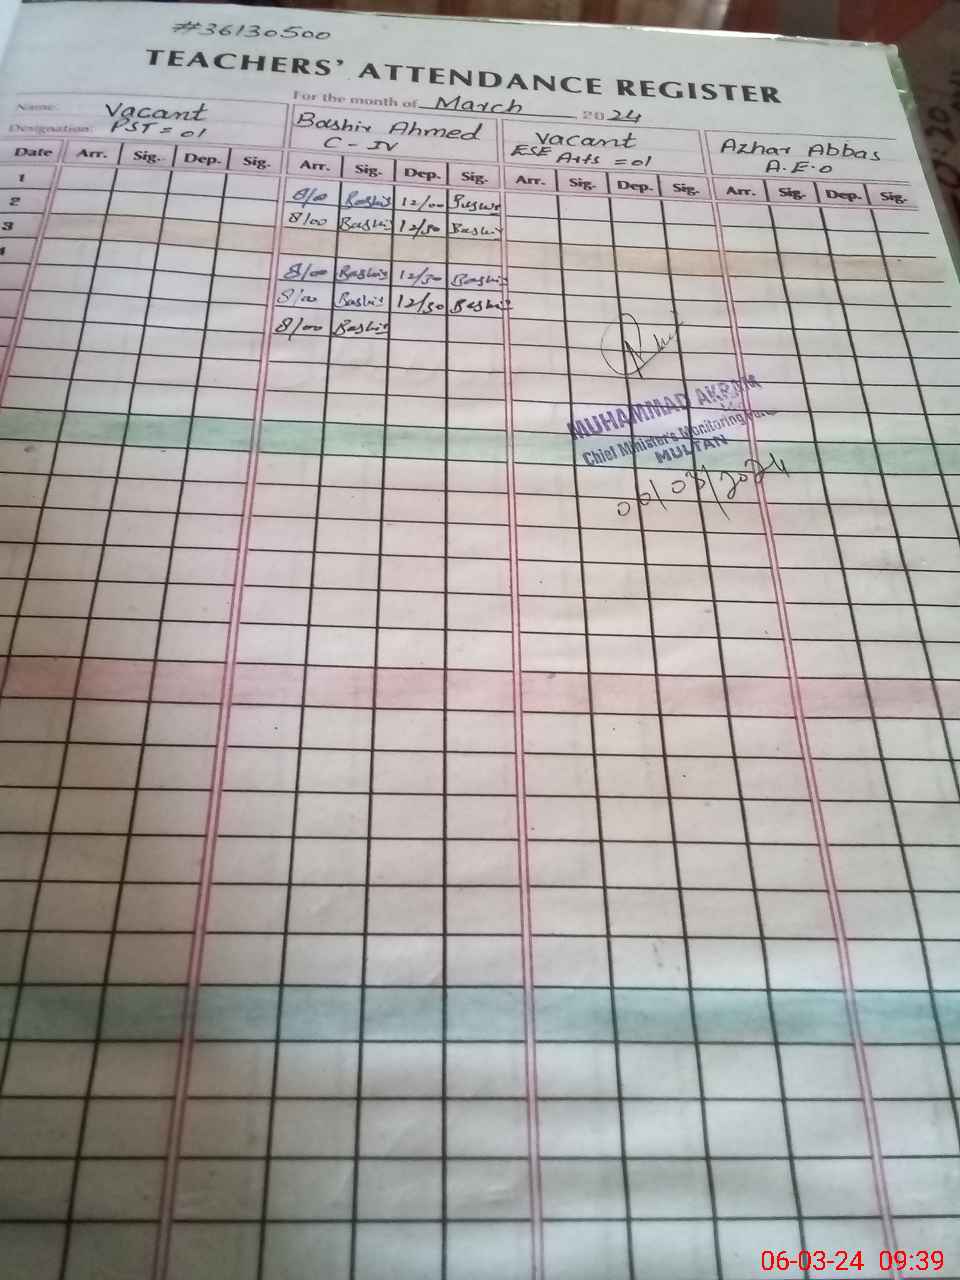 #36130500
TEACHERS' ATTENDANCE REGISTER
For the month of March 2024
Name: Vacant Bashir Ahmed Vacant Azhar Abbas
Designation: PST = 01 C - IV ESE Arts = 01 A.E.O
Date Arr. Sig. Dep. Sig. Arr. Sig. Dep. Sig. Arr. Sig. Dep. Sig. Arr. Sig. Dep. Sig.
1 8/00 Bashir 12/00
2 8/00 Bashir 12/30 Bashir
3
4 8/00 Bashir 12/30 Bashir
8/00 Bashir 12/30 Bashir
8/00 Bashir
MUHAMMAD AKRAM
Chief Minister's Monitoring
MULTAN
06/03/2024
06-03-24 09:39